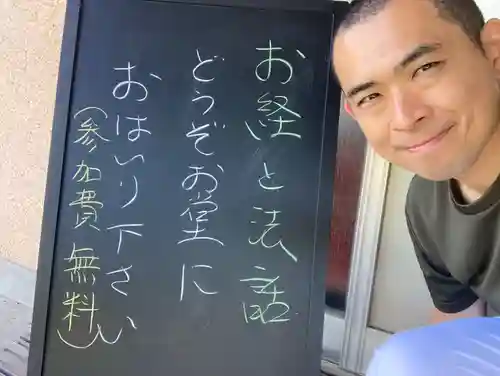 お経と法話
どうぞお堂に
おはいり下さい
(参加費無料)